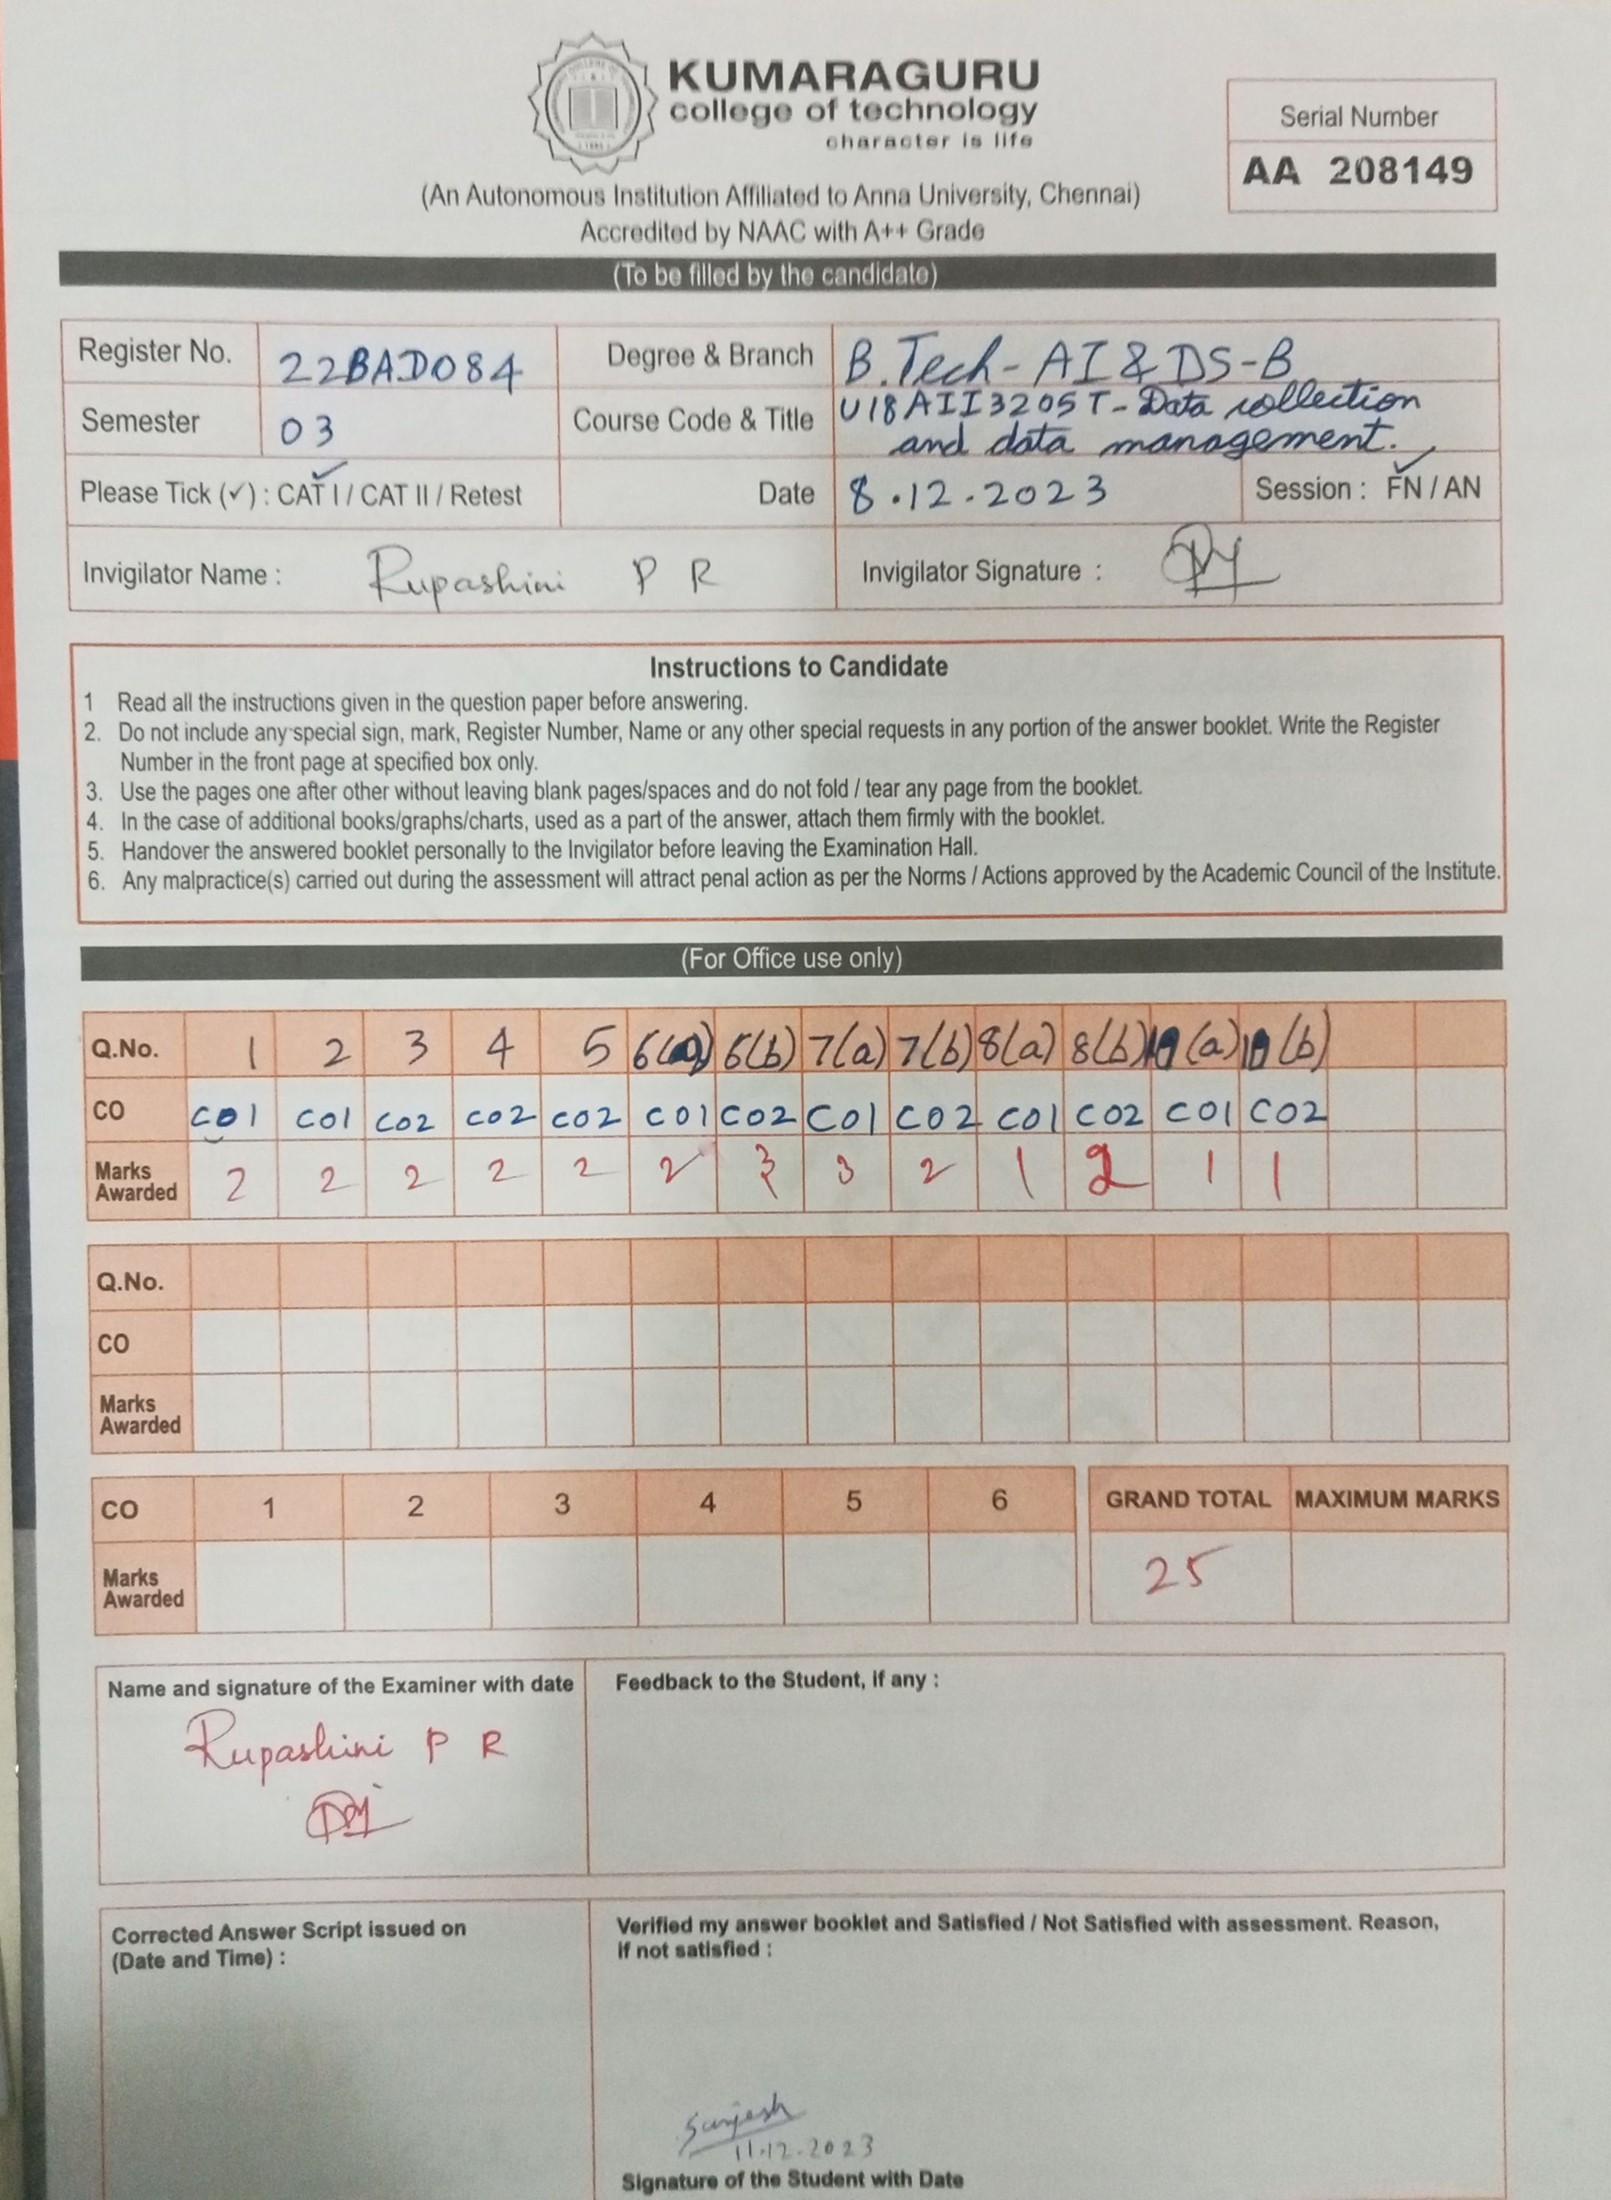 KUMARAGURU
college of technology
character is life
(An Autonomous Institution Affiliated to Anna University, Chennai)
Accredited by NAAC with A++ Grade
Serial Number
AA 208149
(To be filled by the candidate)
Register No. 22BAD084 Degree & Branch B.Tech - AI & DS-B
Semester 03 Course Code & Title U18AII3205T - Data collection
and data management.
Please Tick (✓) : CAT I / CAT II / Retest Date 8.12.2023 Session : FN / AN
Invigilator Name : Rupashini P R Invigilator Signature :
Instructions to Candidate
1 Read all the instructions given in the question paper before answering.
2. Do not include any special sign, mark, Register Number, Name or any other special requests in any portion of the answer booklet. Write the Register
Number in the front page at specified box only.
3. Use the pages one after other without leaving blank pages/spaces and do not fold / tear any page from the booklet.
4. In the case of additional books/graphs/charts, used as a part of the answer, attach them firmly with the booklet.
5. Handover the answered booklet personally to the Invigilator before leaving the Examination Hall.
6. Any malpractice(s) carried out during the assessment will attract penal action as per the Norms / Actions approved by the Academic Council of the Institute.
(For Office use only)
Q.No. 1 2 3 4 5 6(a) 6(b) 7(a) 7(b) 8(a) 8(b) 10(a) 10(b)
CO CO1 CO1 CO2 CO2 CO2 CO1 CO2 CO1 CO2 CO1 CO2 CO1 CO2
Marks
Awarded 2 2 2 2 2 2 3 3 2 1 2 1 1
Q.No.
CO
Marks
Awarded
CO 1 2 3 4 5 6 GRAND TOTAL MAXIMUM MARKS
Marks
Awarded 25
Name and signature of the Examiner with date Feedback to the Student, if any :
Rupashini P R
Corrected Answer Script issued on
(Date and Time) :
Verified my answer booklet and Satisfied / Not Satisfied with assessment. Reason,
if not satisfied :
Sanjesh
11.12.2023
Signature of the Student with Date